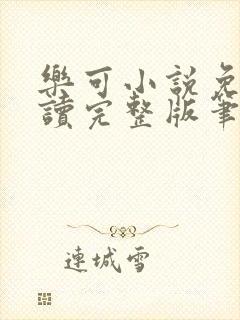 樂可小說免
讀完整版筆
連城雪